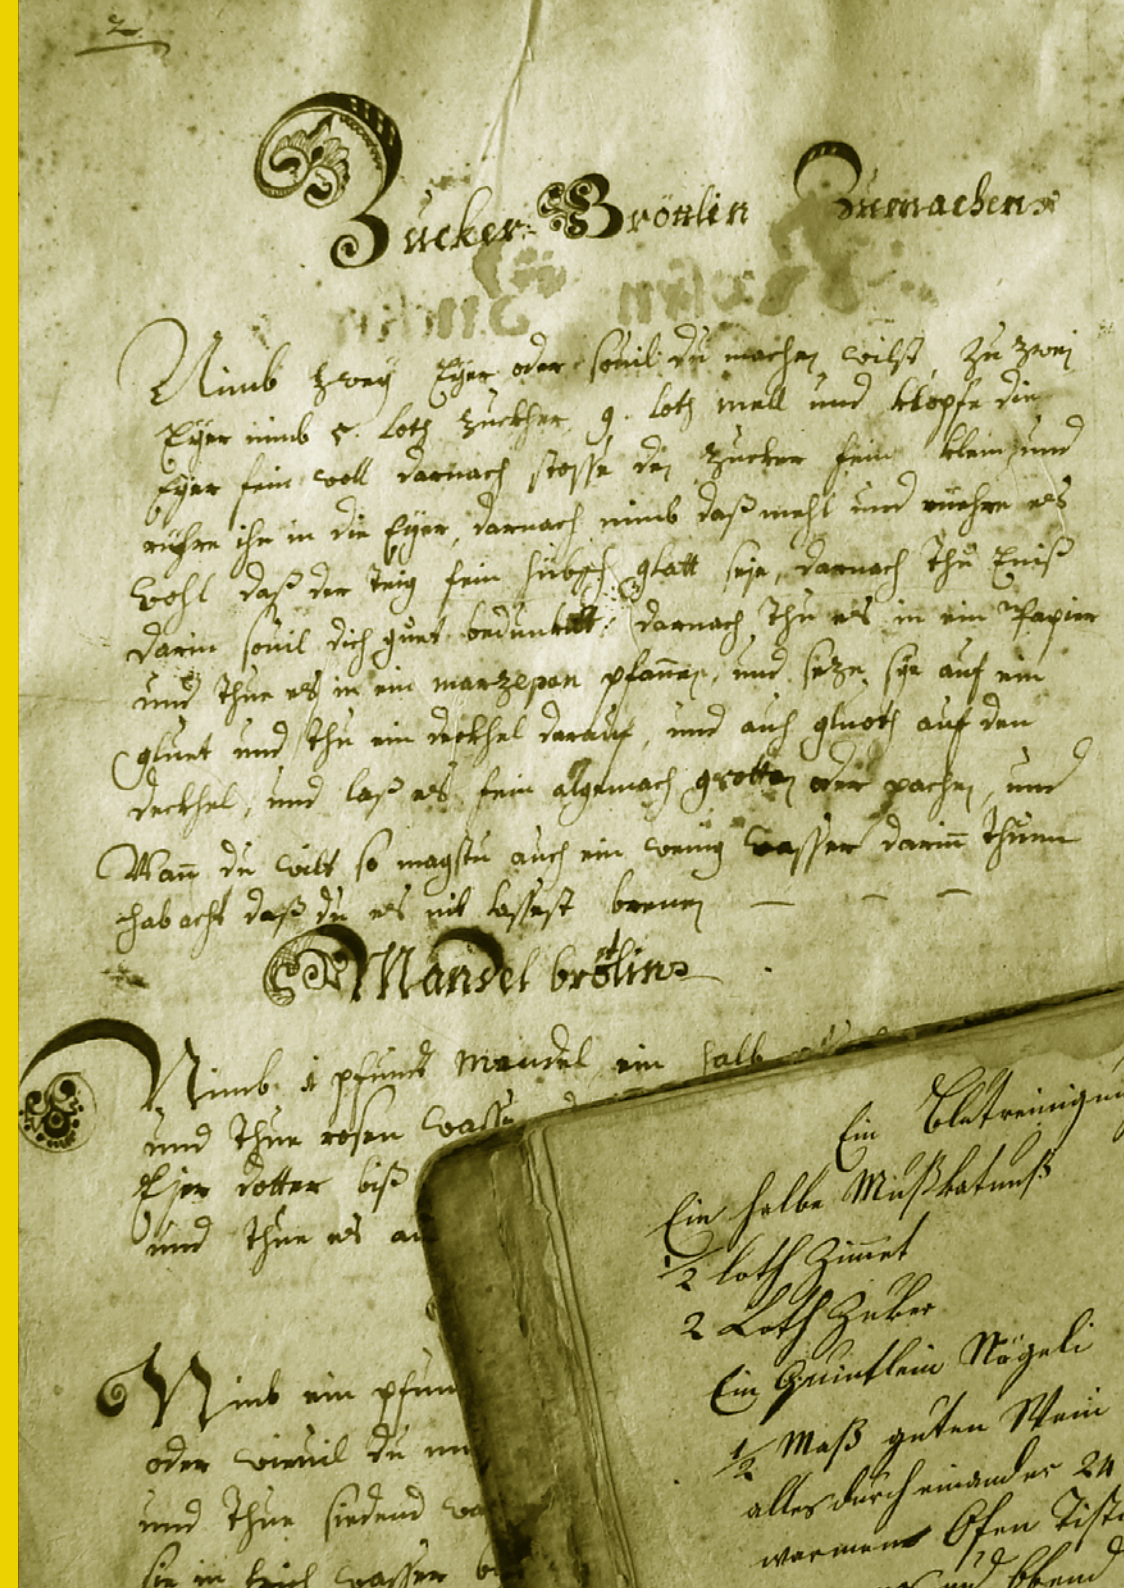 2.
Zucker: Brötlin Zumachen
Nimb zweÿ Eÿer oder souil du machen wilst, Zu zweÿ
Eÿer nimb 5. loth zuckher, 9. loth mell und klopfe die
Eÿer fein woll darnach stosse den zucker fein klein und
rühre ihn in die Eÿer, darnach nimb daß mehl und ruehre es
Wohl daß der teig fein hübsch glatt seÿe, darnach thu Eniß
darin souil dich guet bedunkht: darnach thu es in ein Papier
und thue es in ein marzepan pfanen, und seze sÿe auf ein
gluet und thu ein deckhel darauf, und auch gluoth auf den
deckhel, und laß es fein algemach oder pachen, und
Wan du wilt so magstu auch ein wenig wasser darin thuen
hab acht daß du es nit lassest brenen — — —
Mandel brötlin
Nimb 1 pfundt Mandel ein halb
und thue rosen wasse
Eÿer dotter biß
und thue es au
Nimb ein pfun
oder wieuil du
und thue siedend wa
sie in frisch wasser
Ein Blutreinigun
Ein halbe Mußkatnuß
1/2 loth Zimet
2 Loth Zuker
Ein Quintlein Nägeli
1/2 Maß guten Wein
alles durch einander 24
warmen Ofen
und Abend